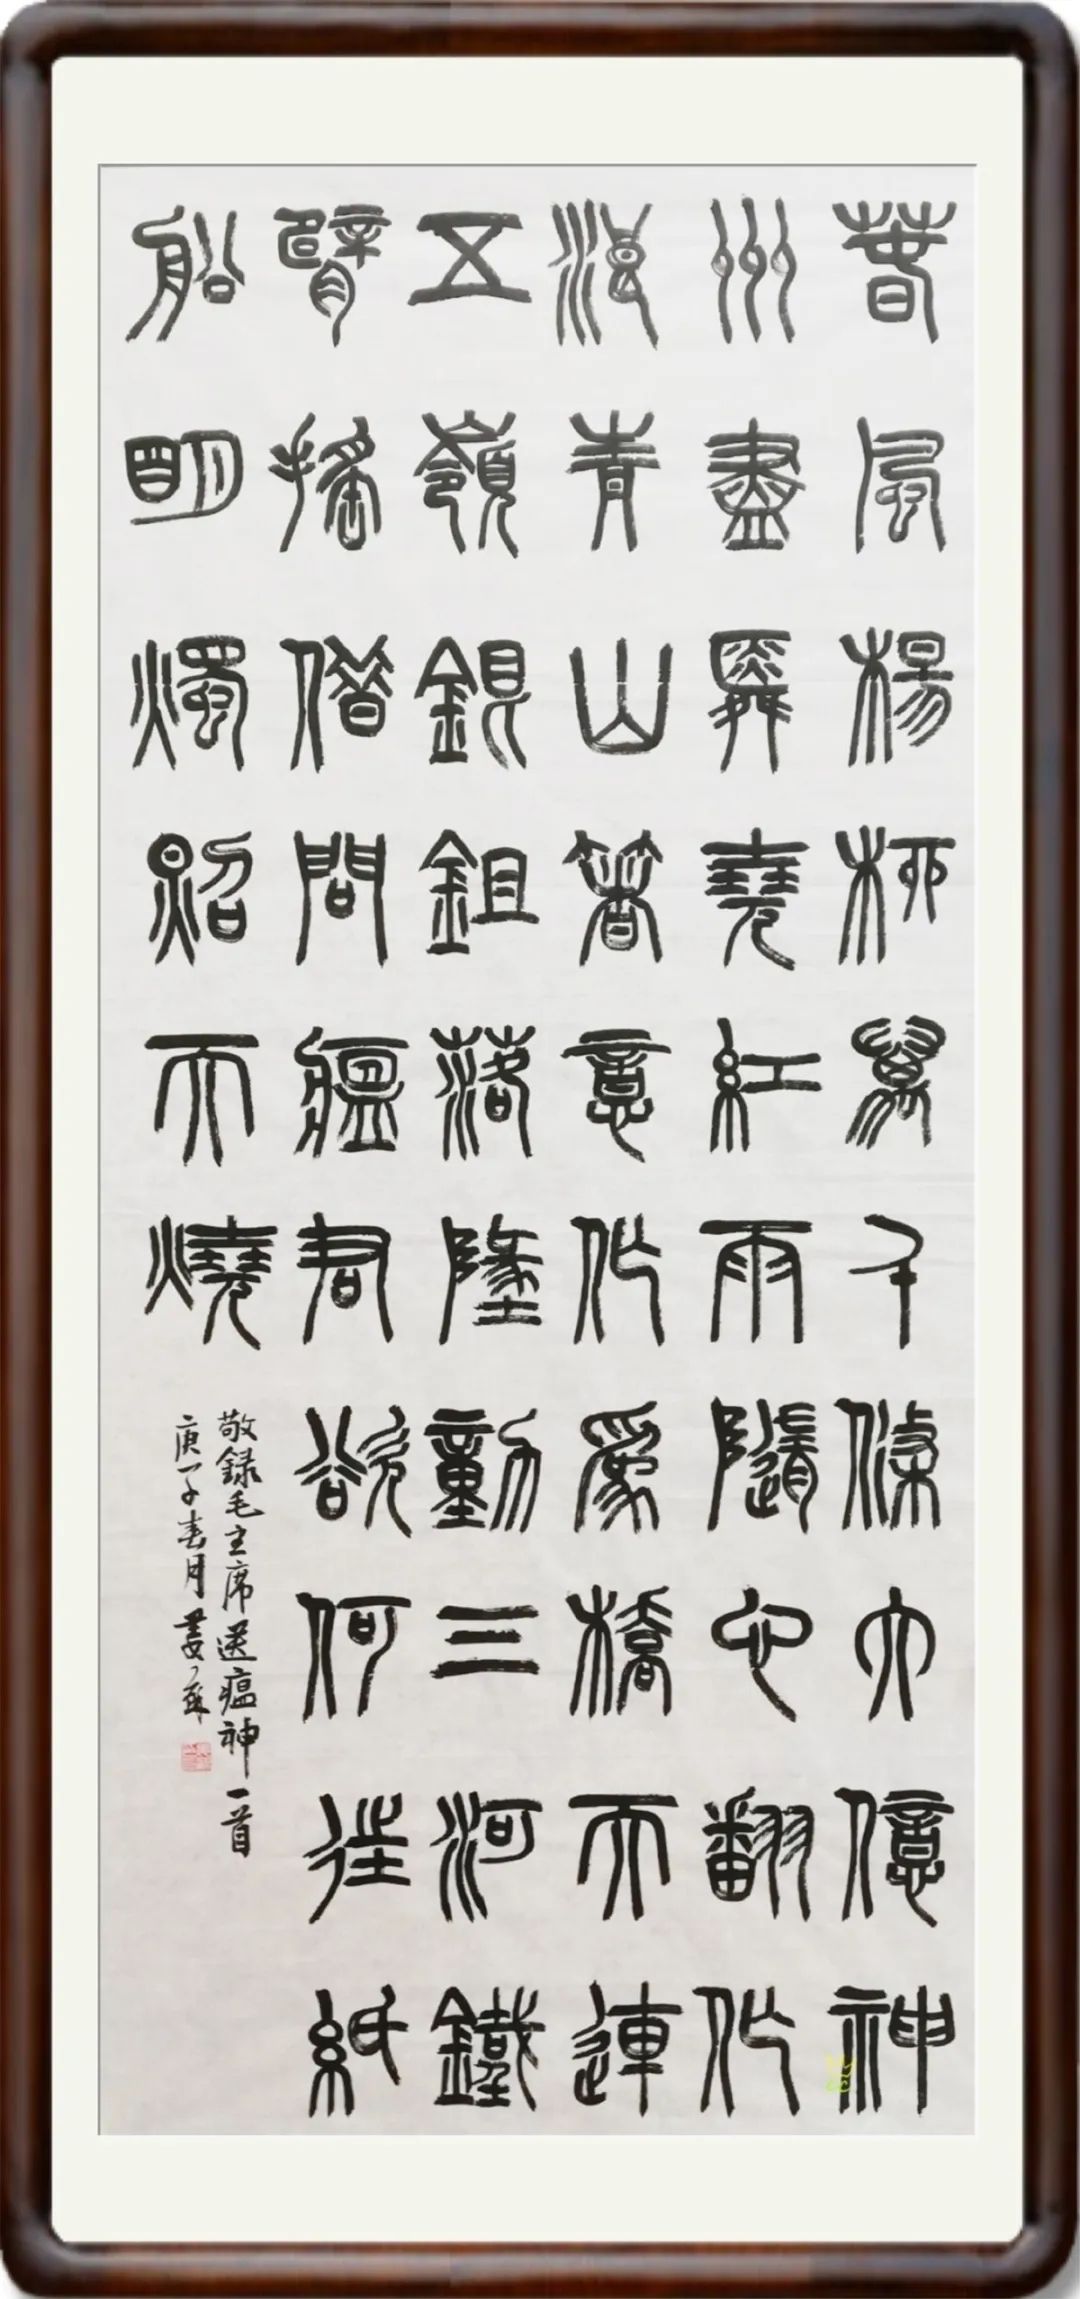 春風楊柳萬千條六億神
州盡舜堯紅雨隨心翻作
浪青山箸意化爲橋天連
五嶺銀鉏落墬動三河鐵
臂搖借問瘟君欲何往紙
船明燭照天燒
敬録毛主席送瘟神一首
庚子春月